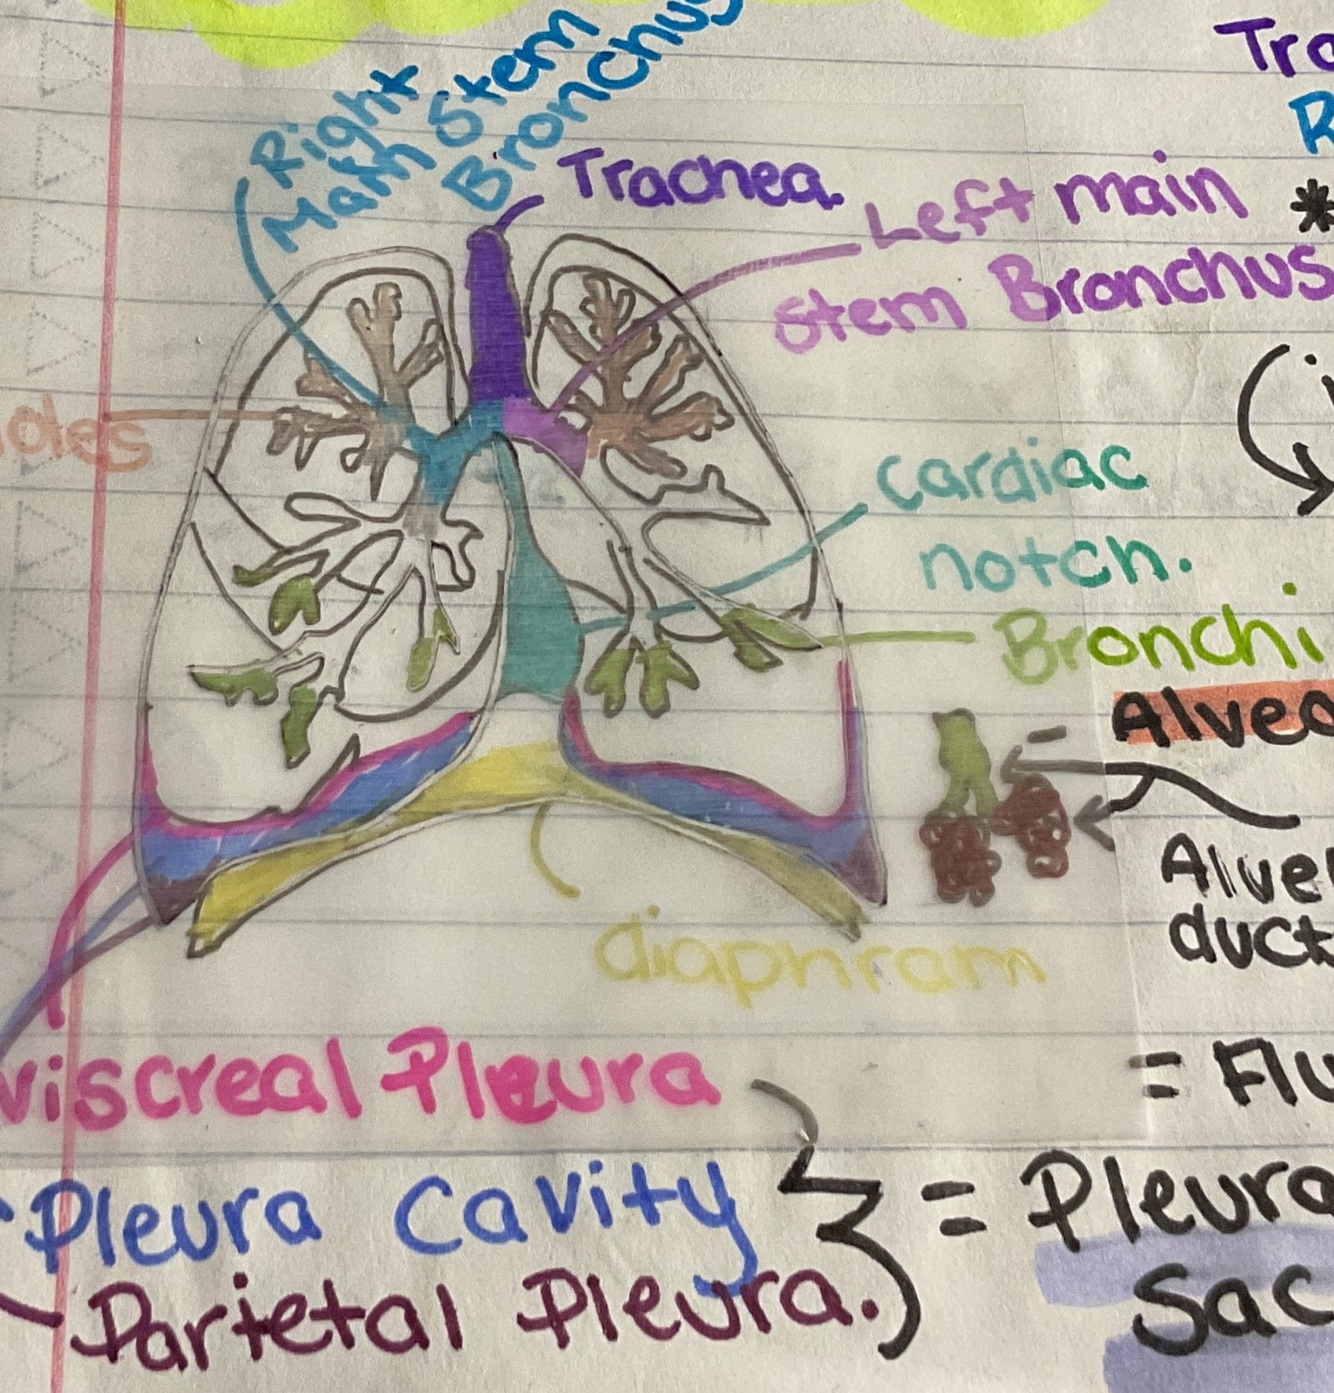 Right
Main Stem
Bronchus
Trachea
Left main
stem Bronchus
Tra
R
*
oles
cardiac
notch.
Bronchi
Alveo
Alve
duct
diaphram
viscreal Pleura
= Flu
Pleura Cavity
= Pleura
Parietal Pleura.
Sac